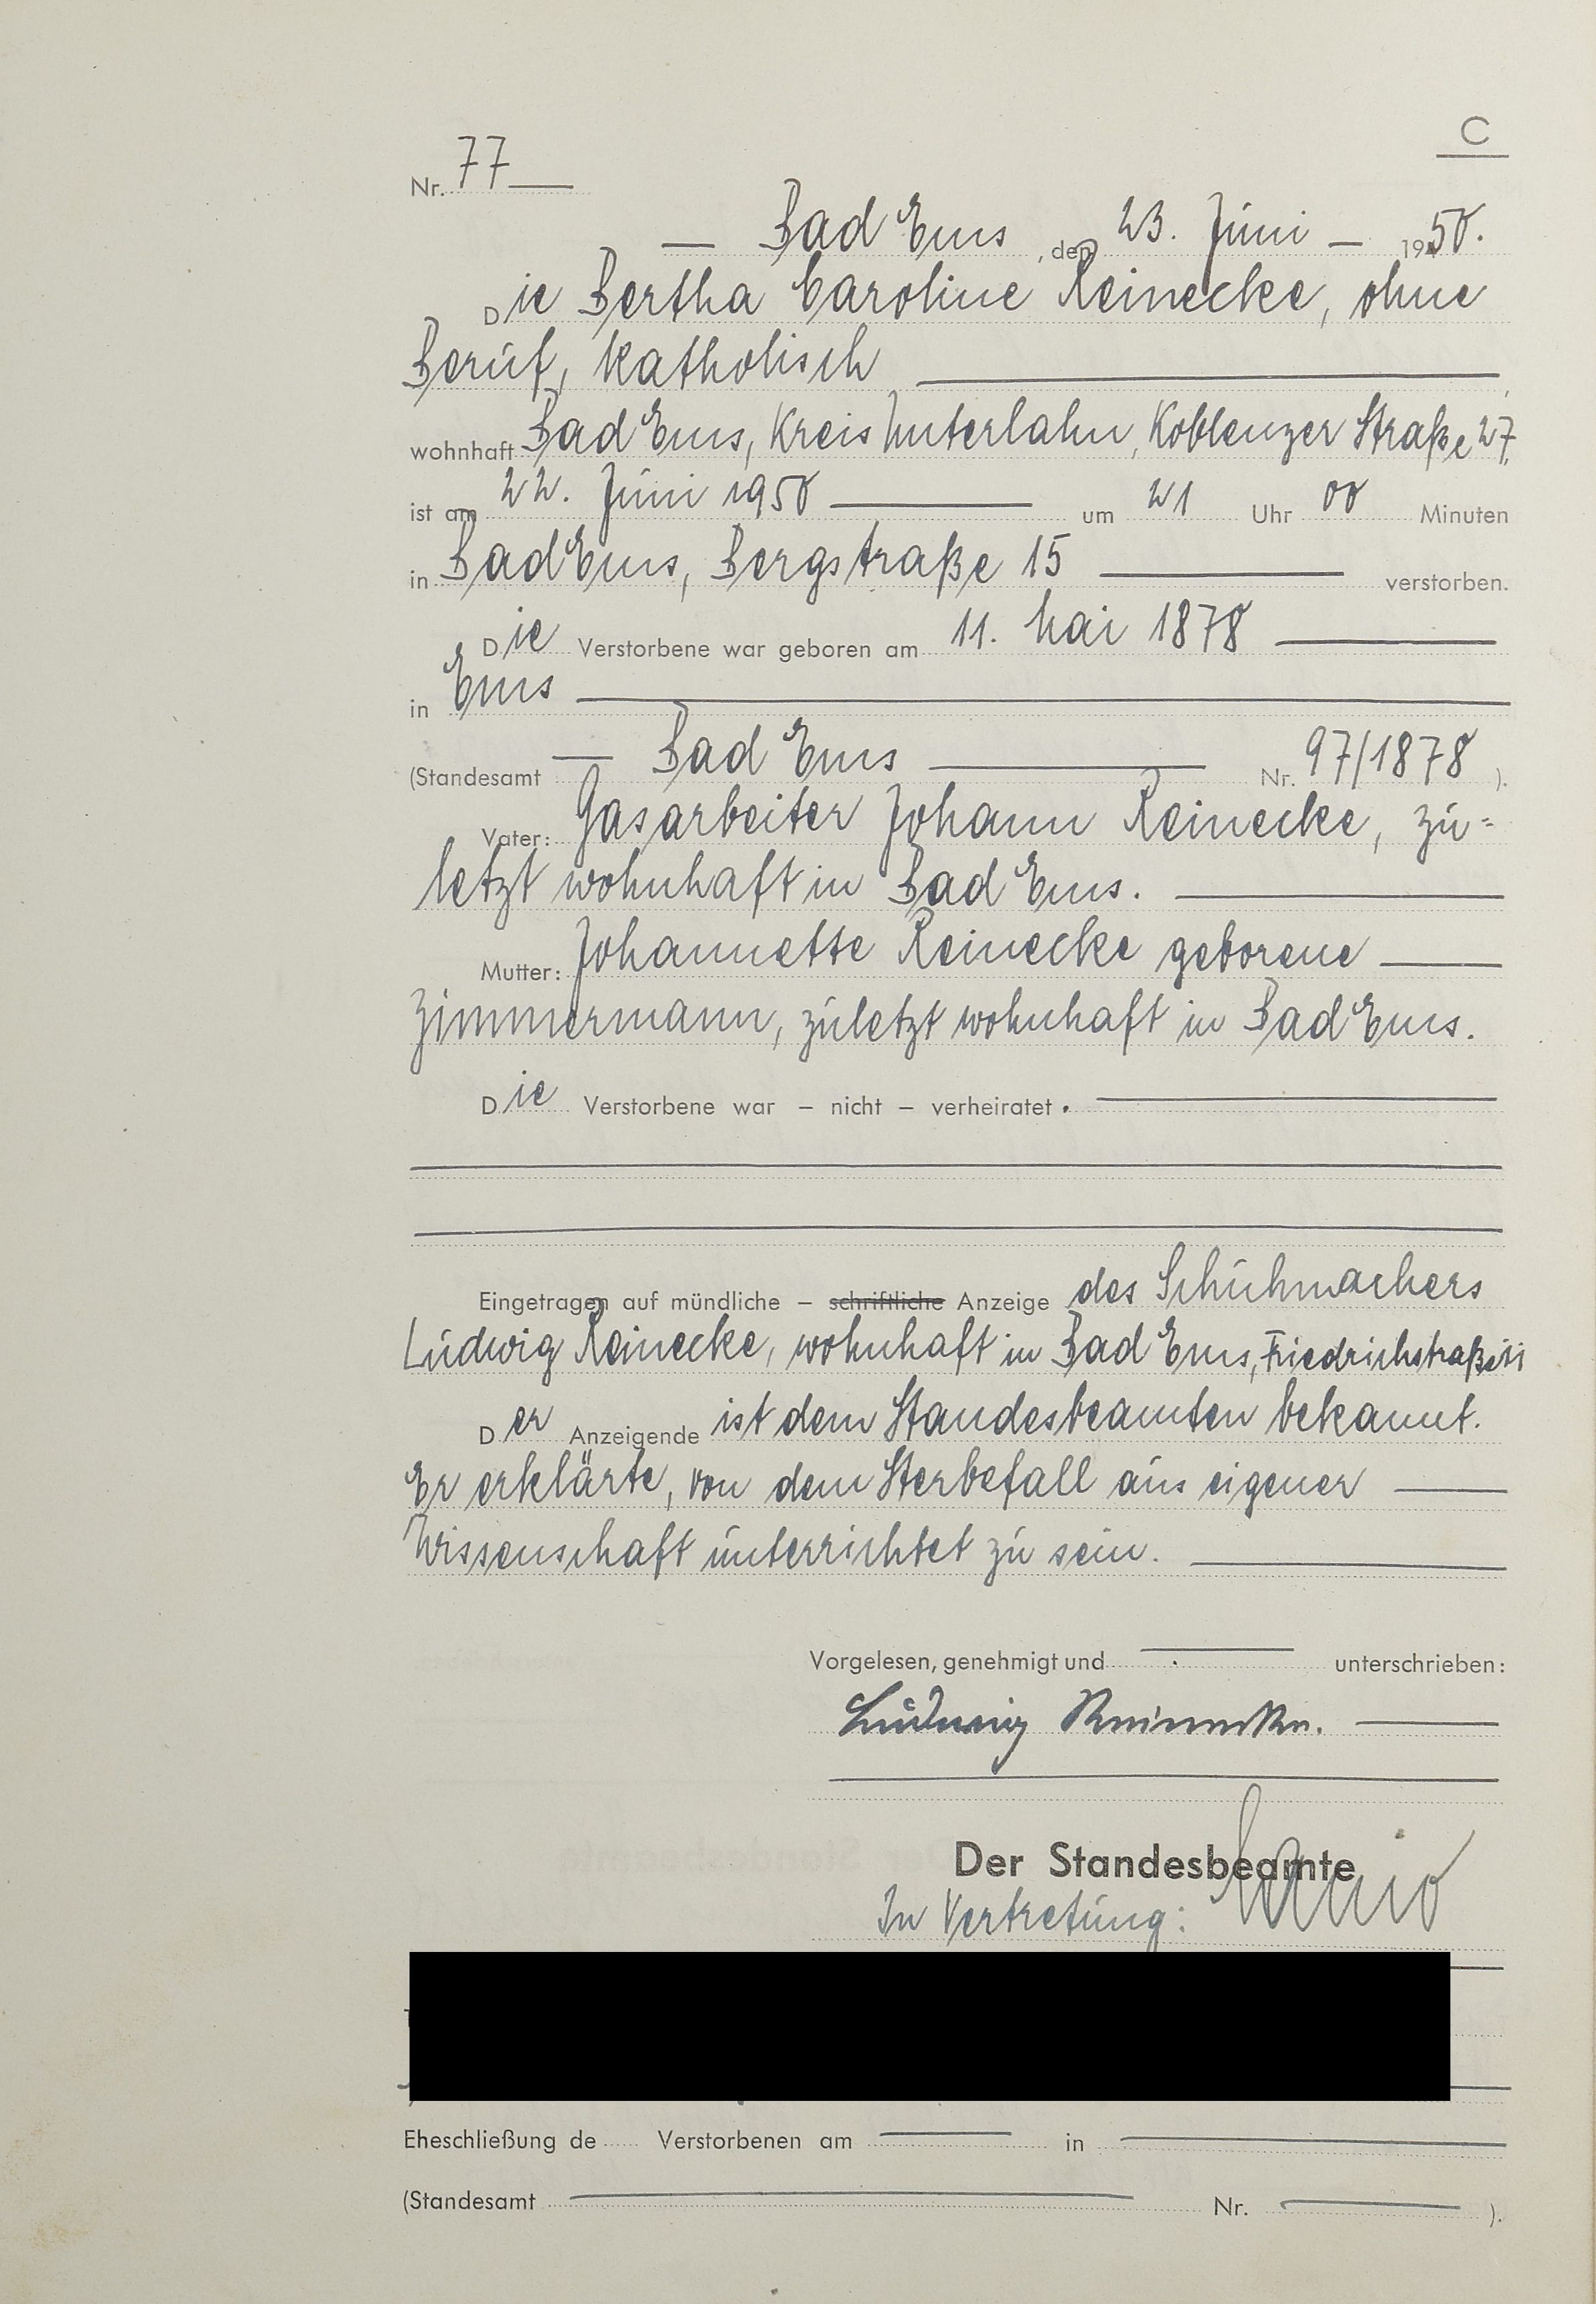 C
Nr. 77
Bad Ems, den 23. Juni 1950.
Die Bertha Caroline Reinecke, ohne
Beruf, katholisch
wohnhaft Bad Ems, Kreis Unterlahn, Koblenzer Straße 27,
ist am 22. Juni 1950 um 21 Uhr 00 Minuten
in Bad Ems, Bergstraße 15 verstorben.
Die Verstorbene war geboren am 11. Mai 1878
in Ems
(Standesamt Bad Ems Nr. 97/1878 ).
Vater: Gasarbeiter Johann Reinecke, zu=
letzt wohnhaft in Bad Ems.
Mutter: Johannette Reinecke geborene
Zimmermann, zuletzt wohnhaft in Bad Ems.
Die Verstorbene war – nicht – verheiratet.
Eingetragen auf mündliche – schriftliche Anzeige des Schuhmachers
Ludwig Reinecke, wohnhaft in Bad Ems, Friedrichstraße
Der Anzeigende ist dem Standesbeamten bekannt.
Er erklärte, von dem Sterbefall aus eigener
Wissenschaft unterrichtet zu sein.
Vorgelesen, genehmigt und unterschrieben:
Ludwig Reinecke.
Der Standesbeamte
In Vertretung:
Eheschließung de Verstorbenen am in
(Standesamt Nr. ).